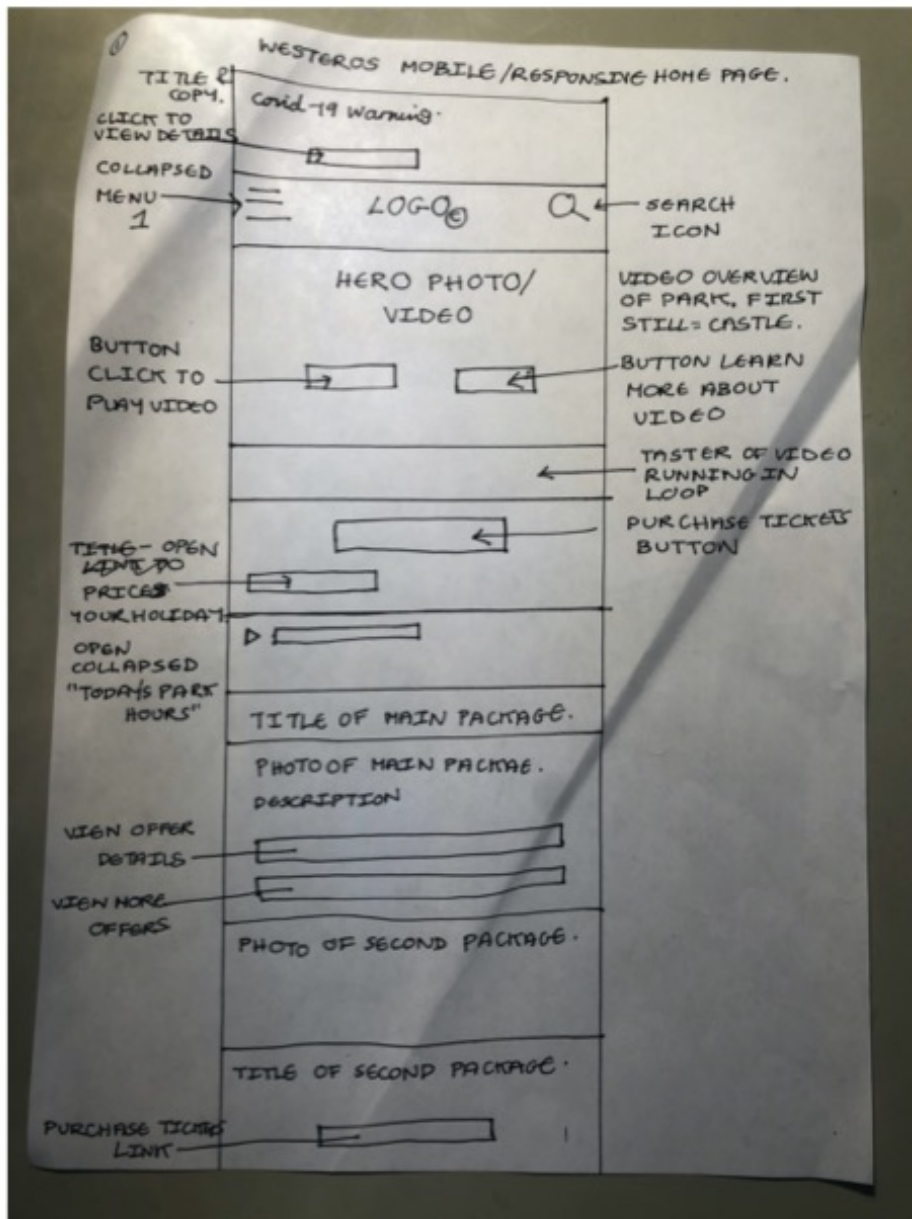 1
WESTEROS MOBILE/RESPONSIVE HOME PAGE.
TITLE &
COPY.
Covid-19 Warning.
CLICK TO
VIEW DETAILS
COLLAPSED
MENU
1
LOGO ©
SEARCH
ICON
HERO PHOTO/
VIDEO
VIDEO OVERVIEW
OF PARK, FIRST
STILL = CASTLE.
BUTTON
CLICK TO
PLAY VIDEO
BUTTON LEARN
MORE ABOUT
VIDEO
TASTER OF VIDEO
RUNNING IN
LOOP
PURCHASE TICKETS
BUTTON
TITLE - OPEN
PRICES
YOUR HOLIDAY
OPEN
COLLAPSED
"TODAY'S PARK
HOURS"
TITLE OF MAIN PACKAGE.
PHOTO OF MAIN PACKAE.
DESCRIPTION
VIEW OFFER
DETAILS
VIEW MORE
OFFERS
PHOTO OF SECOND PACKAGE.
TITLE OF SECOND PACKAGE.
PURCHASE TICKETS
LINK